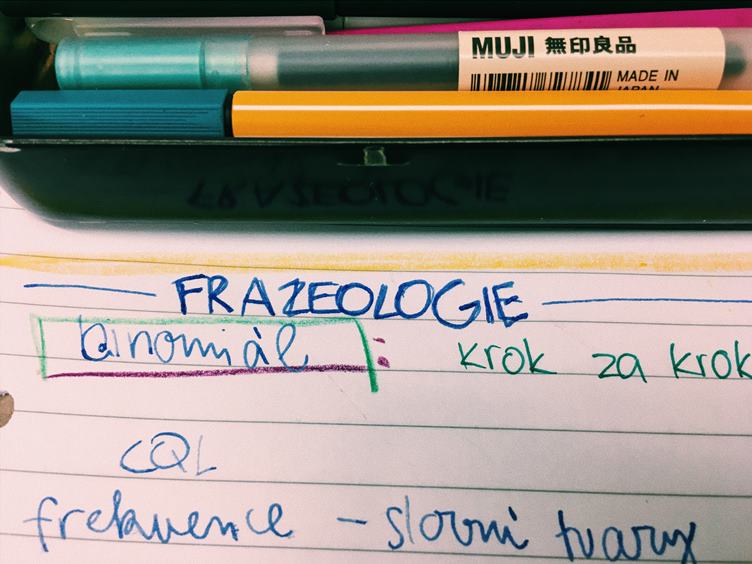 MUJI 無印良品
MADE IN
JAPAN
FRAZEOLOGIE
binomiál : krok za krok
CQL
frekvence - slovní tvary